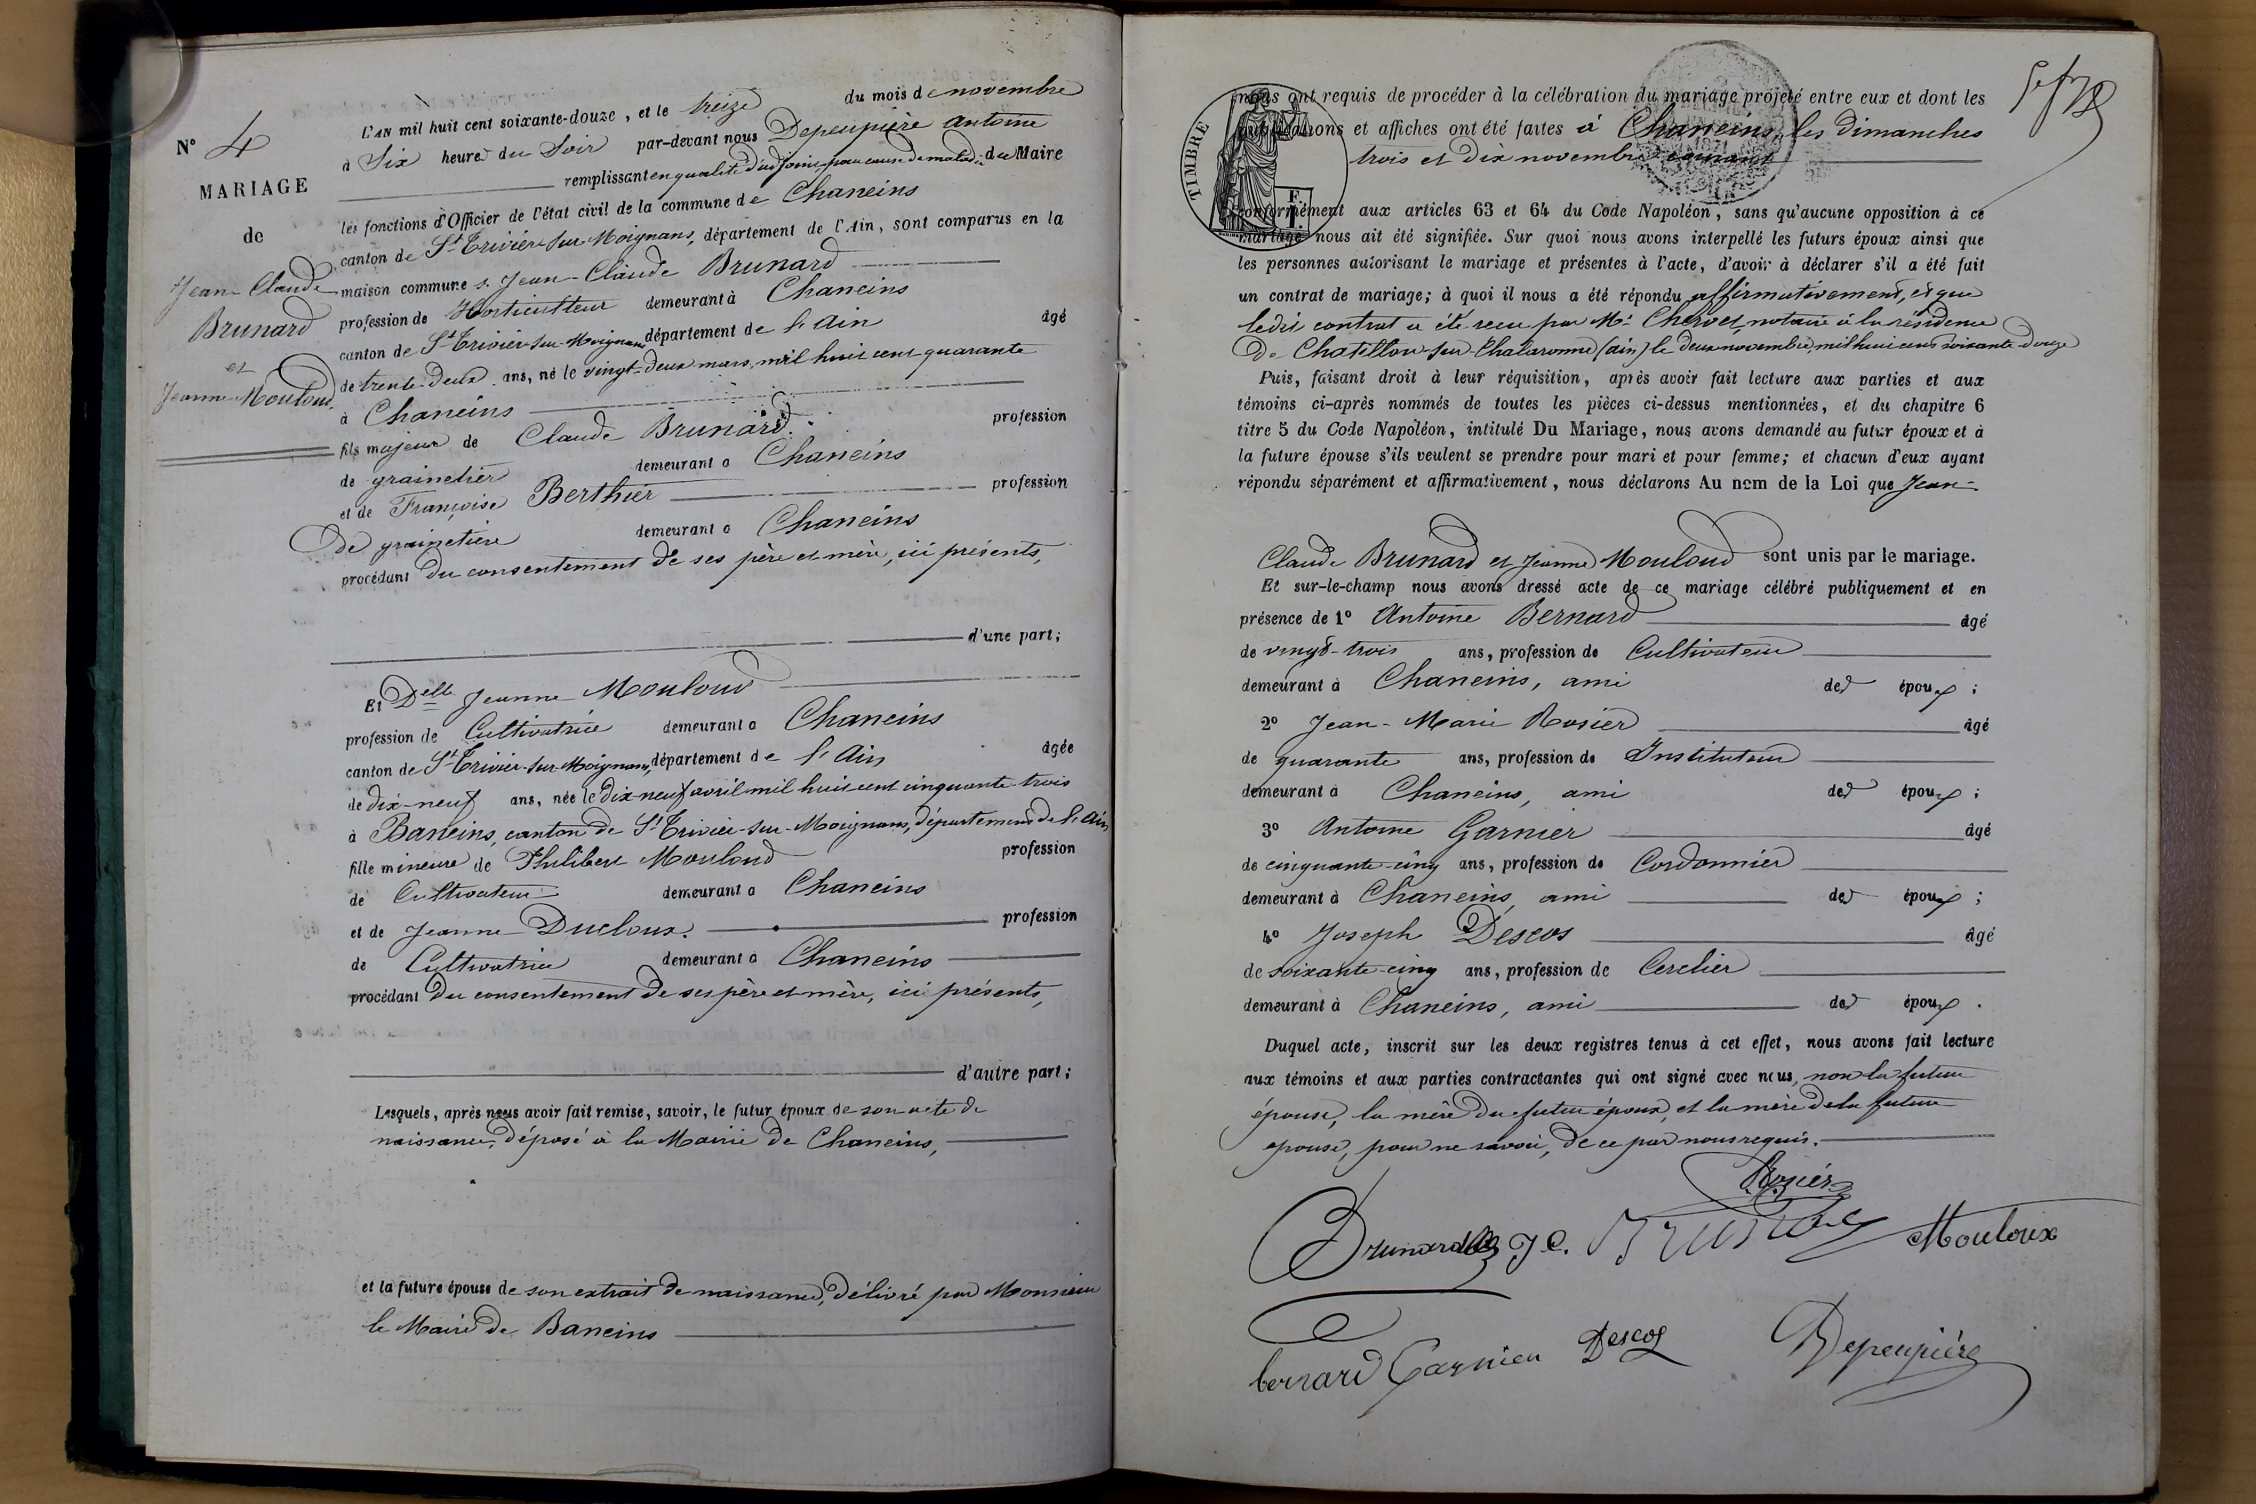 N° 4
MARIAGE
de
Jean-Claude
Brunard
et
Jeanne Mouloud
L'AN mil huit cent soixante-douze, et le treize du mois de novembre
à Six heure du Soir par-devant nous Depeupière Antoine
remplissant en qualité d'adjoint, pour cause de maladie du Maire
les fonctions d'Officier de l'état civil de la commune de Chaneins
canton de St Trivier-sur-Moignans, département de l'Ain, sont comparus en la
maison commune s. Jean-Claude Brunard
profession de Horticulteur demeurant à Chaneins
canton de St Trivier-sur-Moignans département de l'Ain âgé
de trente-deux ans, né le vingt-deux mars, mil huit cent quarante
à Chaneins
fils majeur de Claude Brunard. profession
de grainetier demeurant à Chaneins
et de Françoise Berthier profession
de grainetière demeurant à Chaneins
procédant du consentement de ses père et mère, ici présents,
d'une part;
Et Delle Jeanne Mouloud
profession de Cultivatrice demeurant à Chaneins
canton de St Trivier-sur-Moignans, département de l'Ain âgée
de dix-neuf ans, née le dix-neuf avril mil huit cent cinquante-trois
à Baneins, canton de St Trivier-sur-Moignans, département de l'Ain
fille mineure de Philibert Mouloud profession
de Cultivateur demeurant à Chaneins
et de Jeanne Ducloux. profession
de Cultivatrice demeurant à Chaneins
procédant du consentement de ses père et mère, ici présents,
d'autre part;
Lesquels, après nous avoir fait remise, savoir, le futur époux de son acte de
naissance, déposé à la Mairie de Chaneins,
et la future épouse de son extrait de naissance, délivré par Monsieur
le Maire de Baneins
TIMBRE
nous ont requis de procéder à la célébration du mariage projeté entre eux et dont les
publications et affiches ont été faites à Chaneins, les dimanches
trois et dix novembre courant
conformément aux articles 63 et 64 du Code Napoléon, sans qu'aucune opposition à ce
mariage nous ait été signifiée. Sur quoi nous avons interpellé les futurs époux ainsi que
les personnes autorisant le mariage et présentes à l'acte, d'avoir à déclarer s'il a été fait
un contrat de mariage; à quoi il nous a été répondu affirmativement, et que
ledit contrat a été reçu par Me notaire à la résidence
de Chatillon-sur-Chalaronne (ain) le deux novembre, mil huit cent soixante-douze
Puis, faisant droit à leur réquisition, après avoir fait lecture aux parties et aux
témoins ci-après nommés de toutes les pièces ci-dessus mentionnées, et du chapitre 6
titre 5 du Code Napoléon, intitulé Du Mariage, nous avons demandé au futur époux et à
la future épouse s'ils veulent se prendre pour mari et pour femme; et chacun d'eux ayant
répondu séparément et affirmativement, nous déclarons Au nom de la Loi que Jean-
Claude Brunard et Jeanne Mouloud sont unis par le mariage.
Et sur-le-champ nous avons dressé acte de ce mariage célébré publiquement et en
présence de 1° Antoine Bernard âgé
de vingt-trois ans, profession de Cultivateur
demeurant à Chaneins, ami des époux;
2° Jean-Marie Rosier âgé
de quarante ans, profession de Instituteur
demeurant à Chaneins, ami des époux;
3° Antoine Garnier âgé
de cinquante-cinq ans, profession de Cordonnier
demeurant à Chaneins, ami des époux;
4° Joseph Descos âgé
de soixante-cinq ans, profession de Cerclier
demeurant à Chaneins, ami des époux.
Duquel acte, inscrit sur les deux registres tenus à cet effet, nous avons fait lecture
aux témoins et aux parties contractantes qui ont signé avec nous, non la future
épouse, la mère du futur époux, et la mère de la future
épouse, pour ne savoir, de ce par nous requis.
Rosier
Brunard J C. Brunard Mouloux
bernard Garnier Descos Depeupière